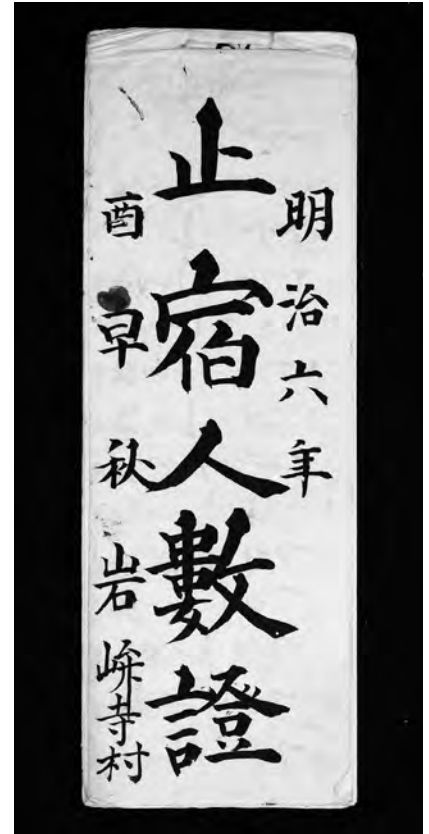 明治六年
止宿人數證
酉早秋 岩峅寺村